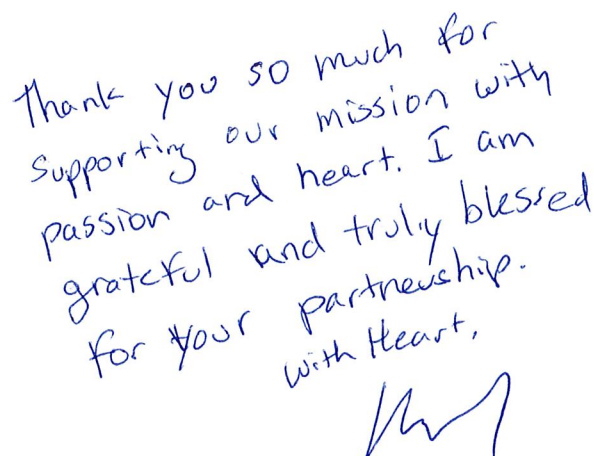 Thank you so much for
supporting our mission with
passion and heart. I am
grateful and truly blessed
for your partnership.
With Heart,